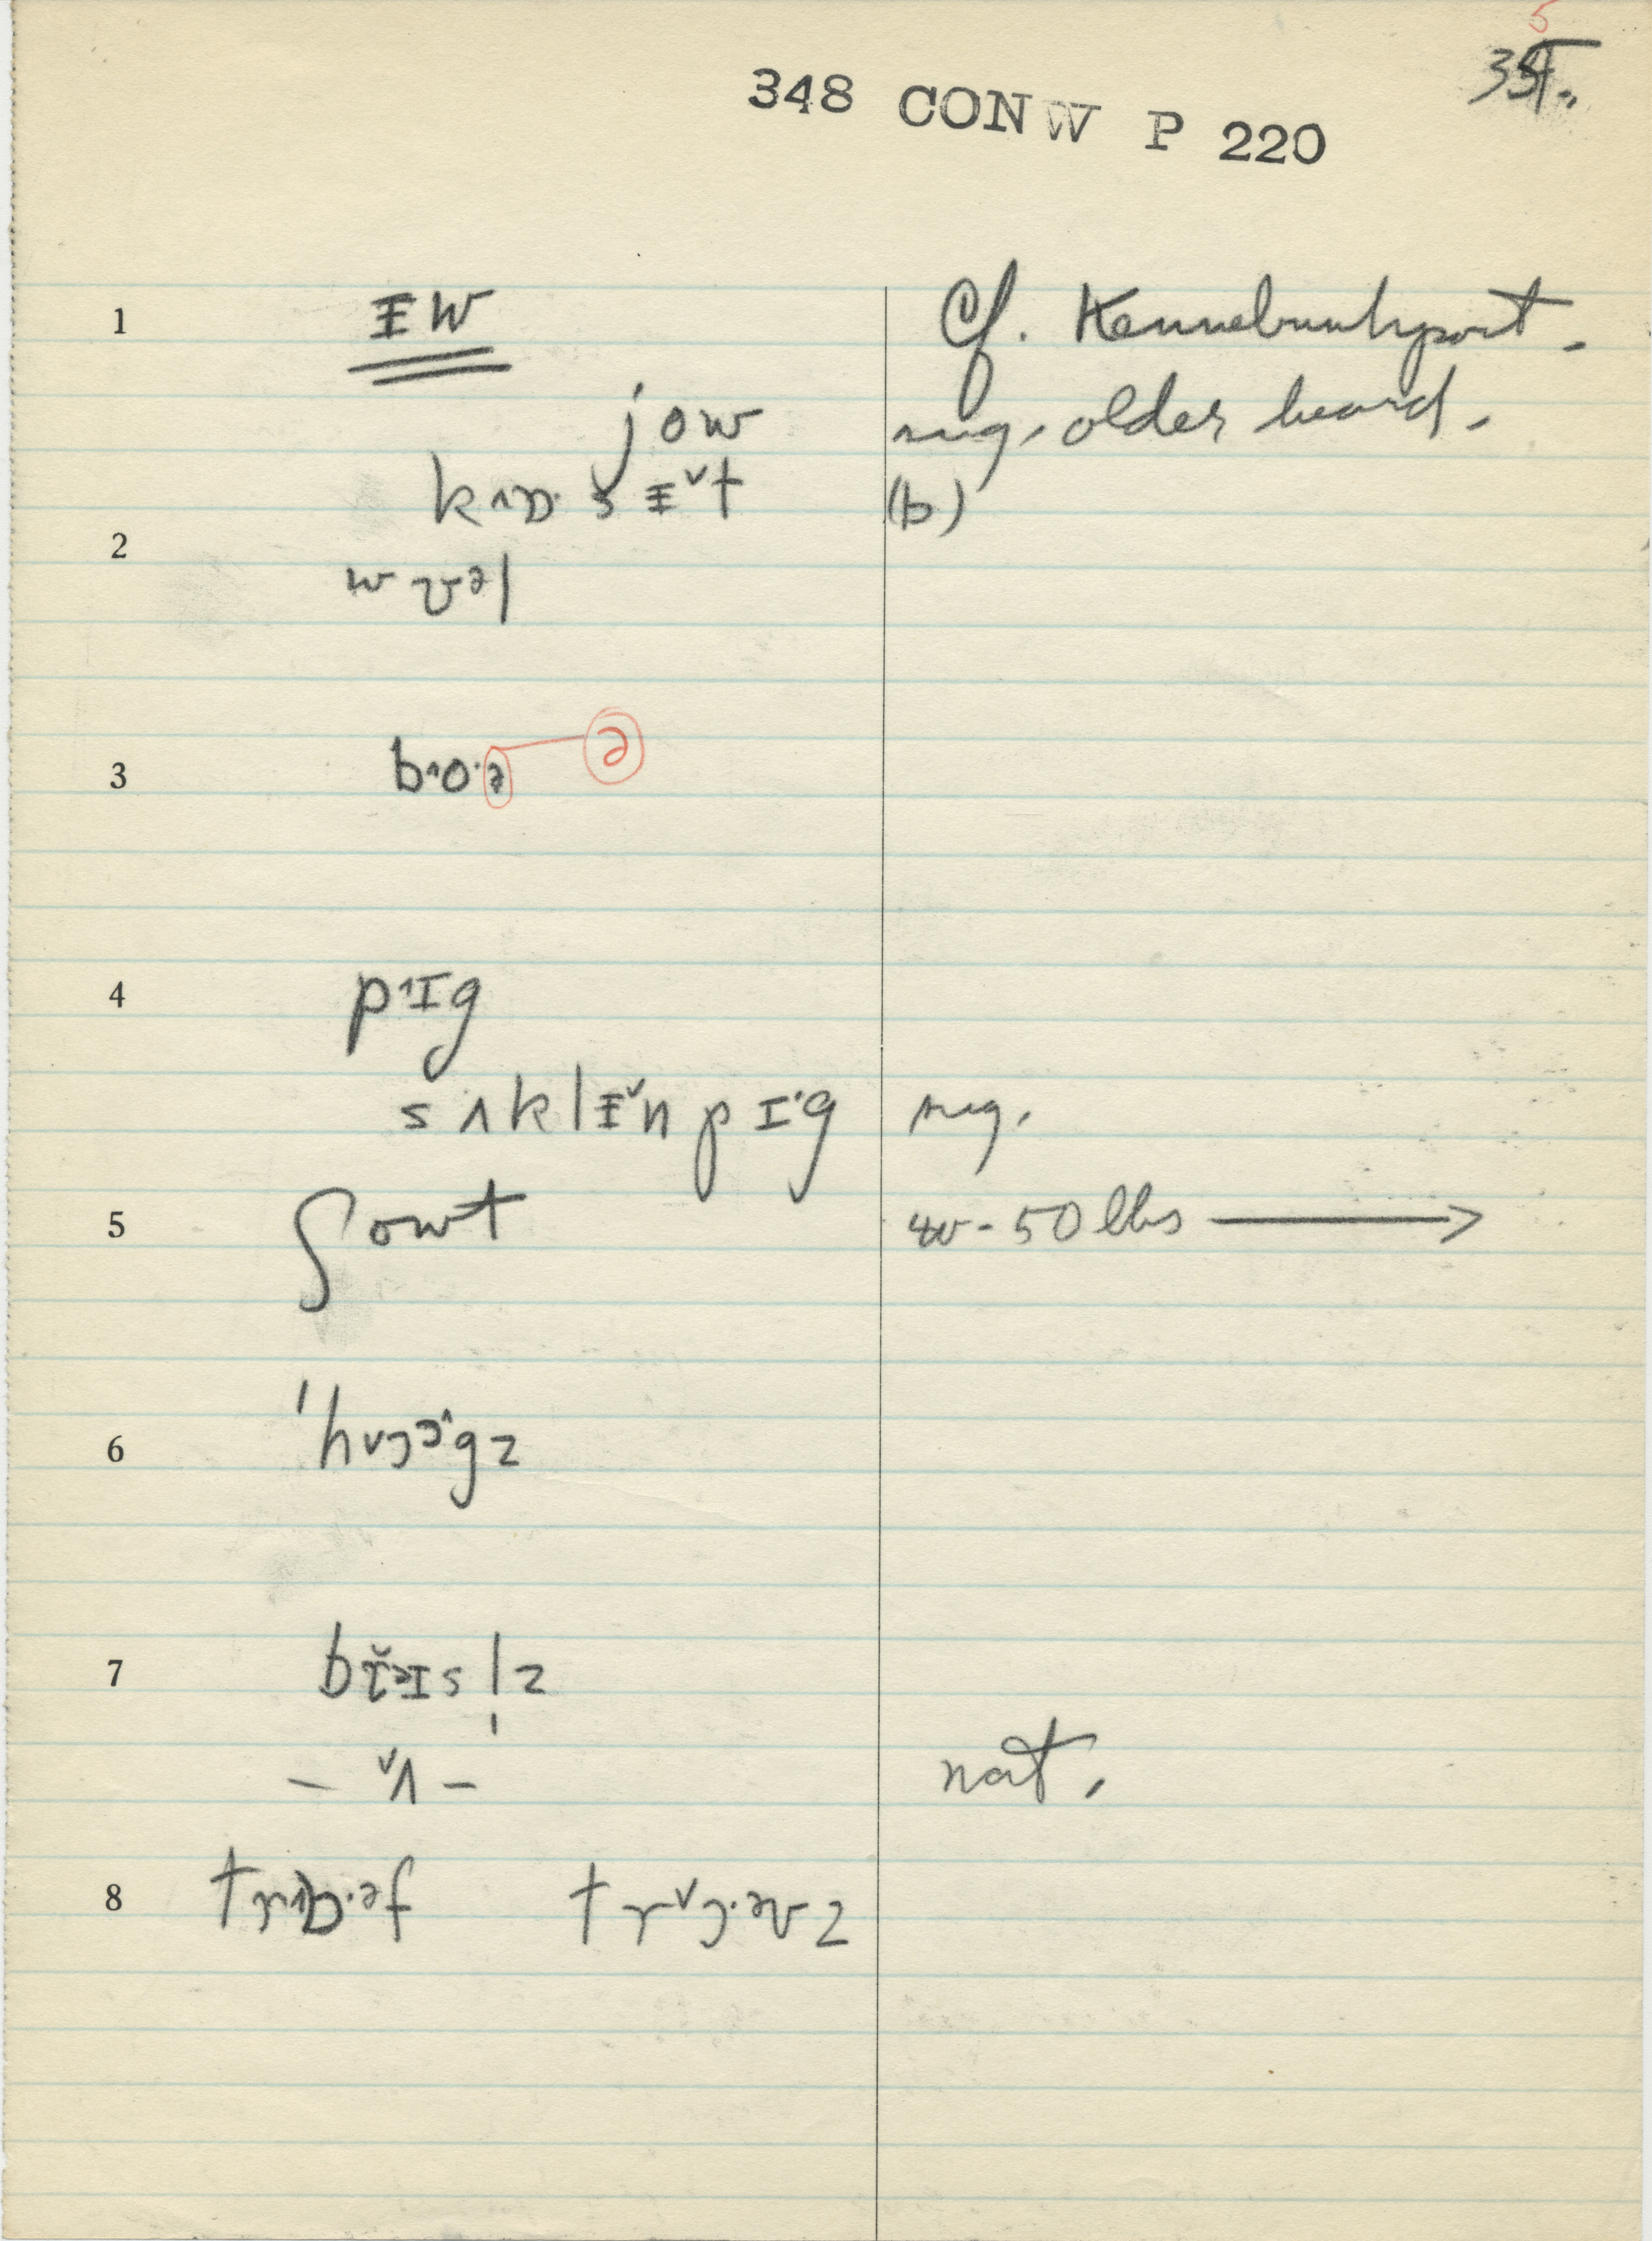 5
348 CONW P 220
1 ᵻw Cf. Kennebunkport.
jow sug. older heard.
kʌɒ·sᵻ˅t (b)
2
wʊəl
3 b˄o·ə ə
4 p˄ɪg
sʌklᵻ˅n pɪ·g sug.
5 ʃowt 40-50 lbs →
6 'hɔ˄gz
7 b ɪsl̩z
– ˅ʌ – nat.
8 trɒ·əf tr˅ɔ·əvz